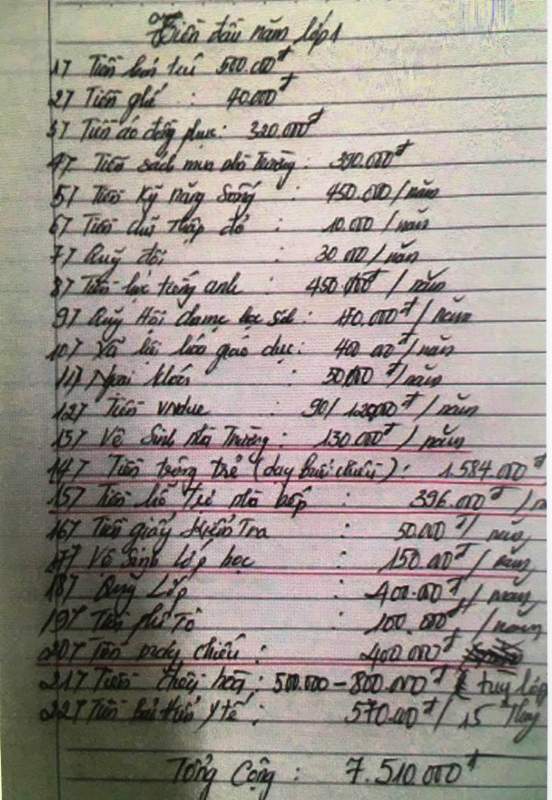 Tiền đầu năm lớp 1
1/ Tiền bán trú 500.000đ
2/ Tiền ghế : 40.000đ
3/ Tiền áo đồng phục: 320.000đ
4/ Tiền sách mua nhà trường: 390.000đ
5/ Tiền Kỹ năng Sống : 450.000/năm
6/ Tiền chữ thập đỏ : 10.000/năm
7/ Quỹ đội : 30.000/năm
8/ Tiền học tiếng anh : 450.000đ/năm
9/ Quỹ Hội cha mẹ học sinh: 170.000đ/năm
10/ Xã hội hóa giáo dục: 400.000đ/năm
11/ Ngoại khóa : 50.000đ/năm
12/ Tiền vnedue : 90/120.000đ/năm
13/ Vệ Sinh nhà Trường: 130.000đ/năm
14/ Tiền trông trẻ (dạy buổi chiều): 1.584.000đ
15/ Tiền hỗ trợ nhà bếp : 396.000đ/n
16/ Tiền giấy kiểm Tra : 50.000đ/năm
17/ Vệ Sinh lớp học : 150.000đ/năm
18/ Quỹ Lớp : 400.000đ/năm
19/ Tiền phô Tô : 100.000đ/năm
20/ Tiền máy chiếu : 400.000đ
21/ Tiền : 500.000 - 800.000đ ( tùy lớp
22/ Tiền bảo hiểm y tế : 570.000đ/15 Tháng
Tổng cộng : 7.510.000đ